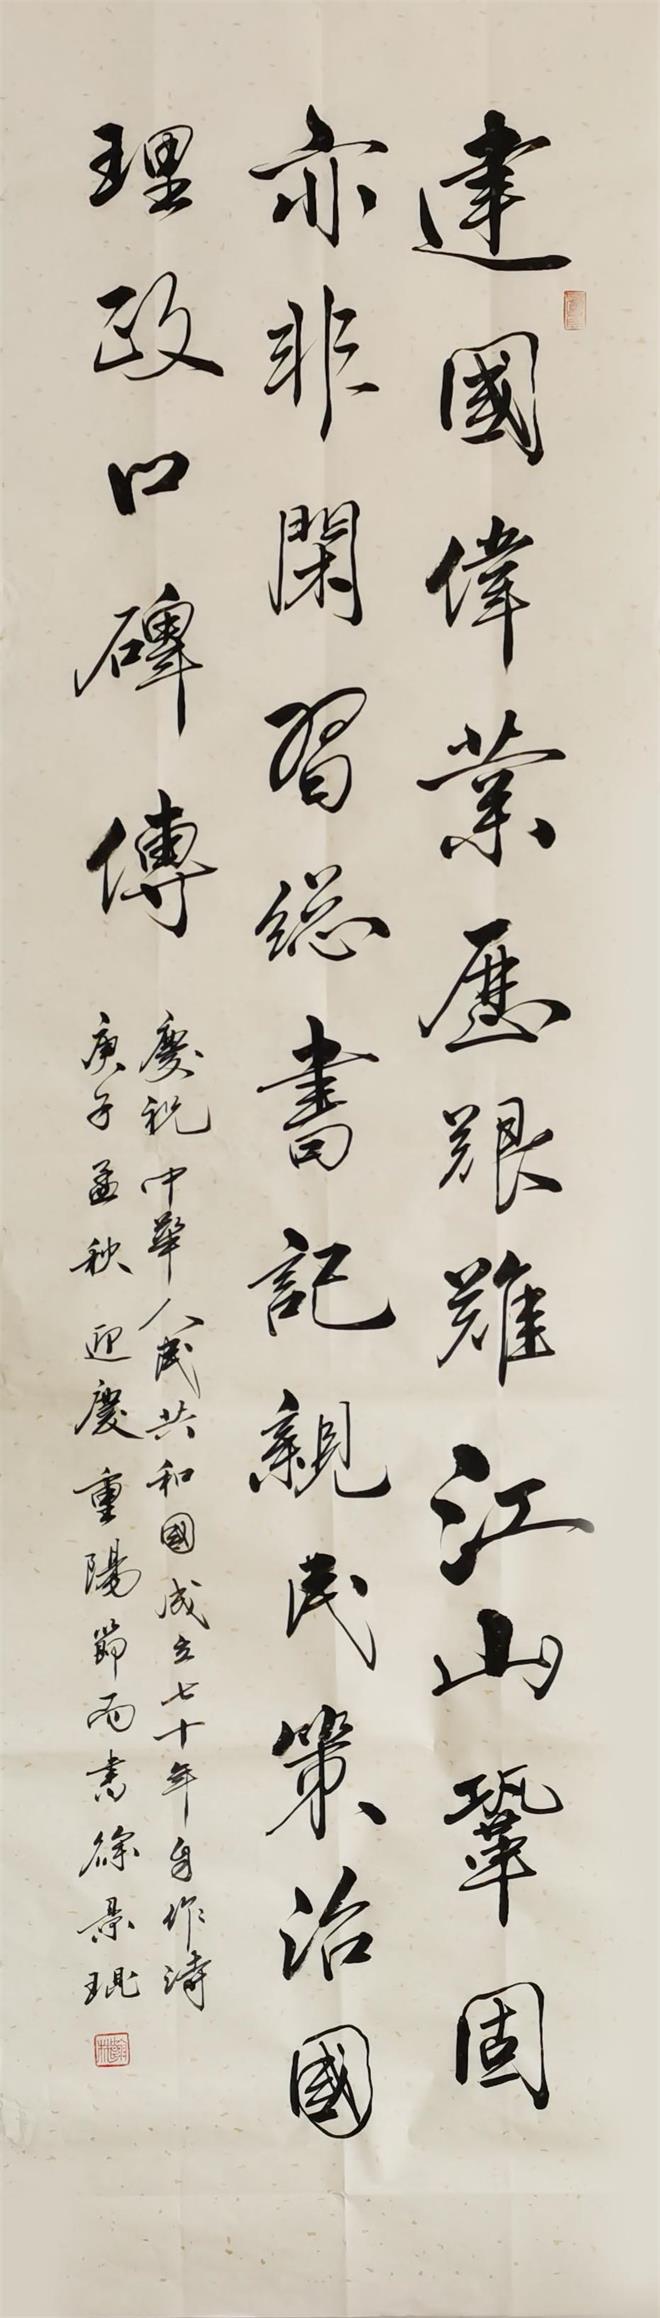 建國偉業歷艱難江山鞏固
亦非閑習総書記親民策治國
理政口碑傳
慶祝中華人民共和國成立七十年自作詩
庚子孟秋迎慶重陽節而書徐景琨